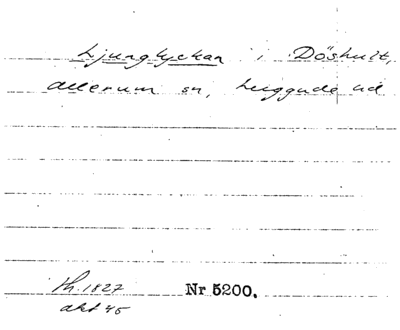 Ljunglyckan i Döshult,
Allerum sn, Luggude hd
Th. 1827
akt 45
Nr 5200.